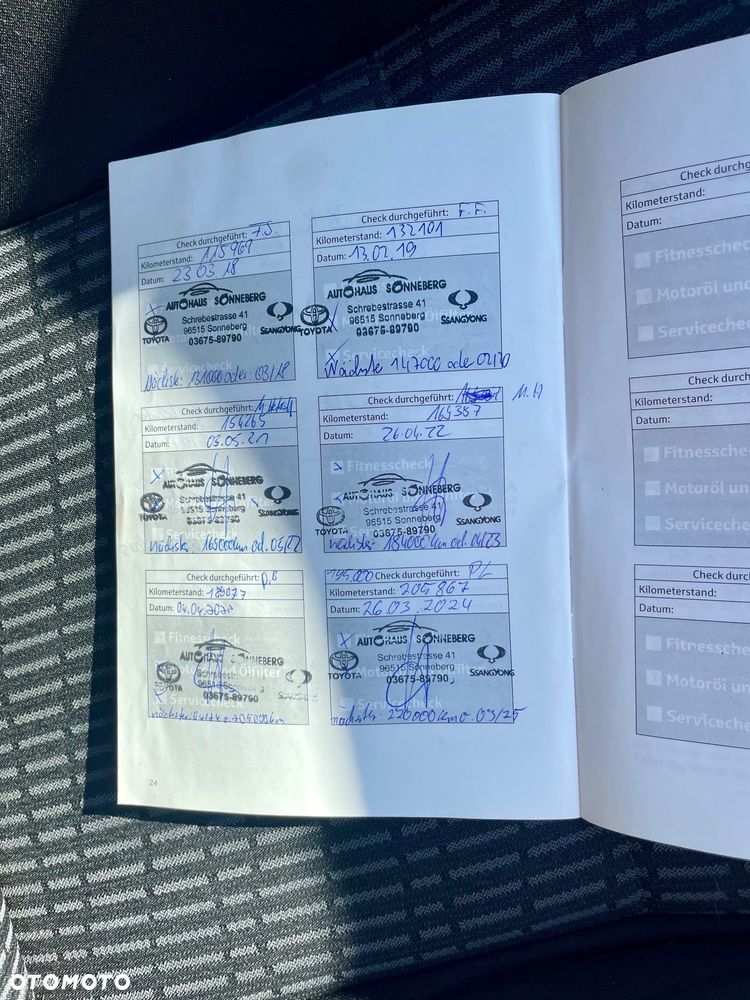 Check durchgeführt: F.S.
Kilometerstand: 115969
Datum: 23 03 18
AUTOHAUS SONNEBERG
Schrebestrasse 41
96515 Sonneberg
03675-89790
TOYOTA
SSANGYONG
Nächste: 131000 oder 03/18
Check durchgeführt: F.F.
Kilometerstand: 132101
Datum: 13.02.19
AUTOHAUS SONNEBERG
Schrebestrasse 41
96515 Sonneberg
03675-89790
TOYOTA
SSANGYONG
Nächste 147000 oder 02/20
Check durchgeführt:
Kilometerstand: 154265
Datum: 03.05.21
AUTOHAUS SONNEBERG
Schrebestrasse 41
96515 Sonneberg
03675-89790
TOYOTA
SSANGYONG
nächste: 169000km od. 05/22
Check durchgeführt: M.H
Kilometerstand: 169387
Datum: 26.04.22
Fitnesscheck
AUTOHAUS SONNEBERG
Schrebestrasse 41
96515 Sonneberg
03675-89790
TOYOTA
SSANGYONG
nächste: 184000km od. 04/23
Check durchgeführt: P.B
Kilometerstand:
Datum: 04.04.
Fitnesscheck
AUTOHAUS SONNEBERG
TOYOTA
03675-89790
Servicecheck
195.000 Check durchgeführt: PL
Kilometerstand: 205867
Datum: 26.03.2024
AUTOHAUS SONNEBERG
Schrebestrasse 41
96515 Sonneberg
03675-89790
TOYOTA
SSANGYONG
nächster: 220000km o. 03/25
24
Check durchgefü
Kilometerstand:
Datum:
Fitnesscheck
Motoröl und
Servicecheck
Check durch
Kilometerstand:
Datum:
Fitnessche
Motoröl un
Serviceche
Check durch
Kilometerstand:
Datum:
Fitnessche
Motoröl un
Serviceche
OTOMOTO